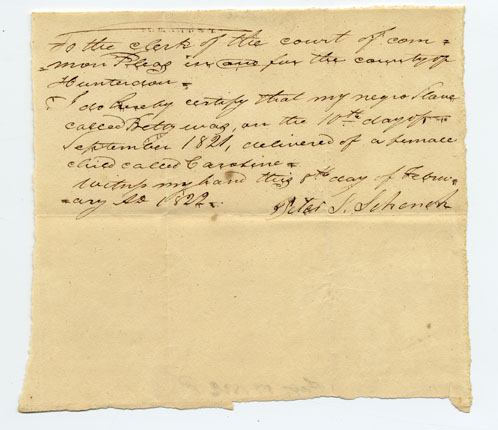 To the clerk of the court of com-
-mon Pleas in and for the county of
Hunterdon =
I do hereby certify that my negro Slave
called Betty was, on the 10th day of
September 1821, delivered of a female
child called Caroline =
Witness my hand this 8th day of Febru-
-ary AD 1822.
Peter S. Schenck